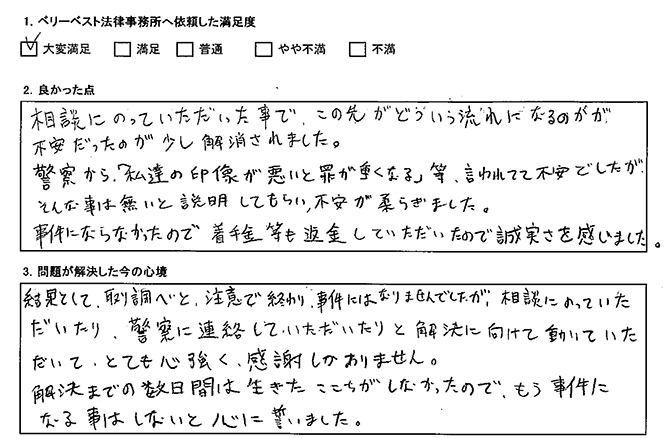 1. ベリーベスト法律事務所へ依頼した満足度
大変満足 満足 普通 やや不満 不満
2. 良かった点
相談にのっていただいた事で、この先がどういう流れになるのかが
不安だったのが少し解消されました。
警察から、「私達の印像が悪いと罪が重くなる」等、言われてて不安でしたが、
そんな事は無いと説明してもらい、不安が柔らぎました。
事件にならなかったので着手金等も返金していただいたので誠実さを感いました。
3. 問題が解決した今の心境
結果として、取り調べと、注意で終わり、事件にはなりませんでしたが、相談にのっていた
だいたり、警察に連絡していただいたりと解決に向けて動いていた
だいて、とても心強く、感謝しかありません。
解決までの数日間は生きたここちがしなかったので、もう事件に
なる事はしないと心に誓いました。